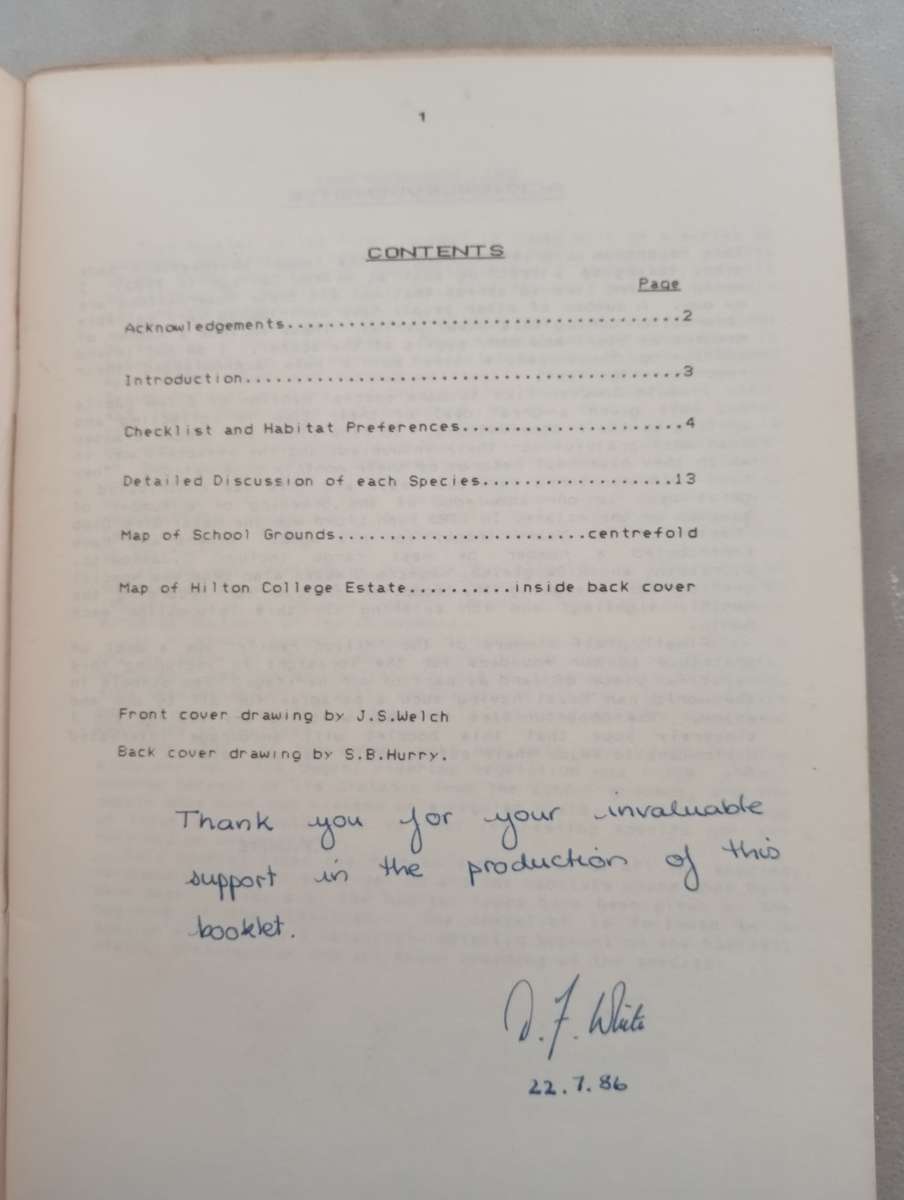 1
CONTENTS
Page
Acknowledgements.......................................2
Introduction...........................................3
Checklist and Habitat Preferences......................4
Detailed Discussion of each Species...................13
Map of School Grounds.........................centrefold
Map of Hilton College Estate..........inside back cover
Front cover drawing by J.S.Welch
Back cover drawing by S.B.Hurry.
Thank you for your invaluable
support in the production of this
booklet.
D. F. White
22.7.86